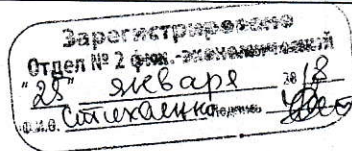 Зарегистрировано
Отдел № 2 фин.-экономический
"25" января 2018
Ф.И.О. подпись